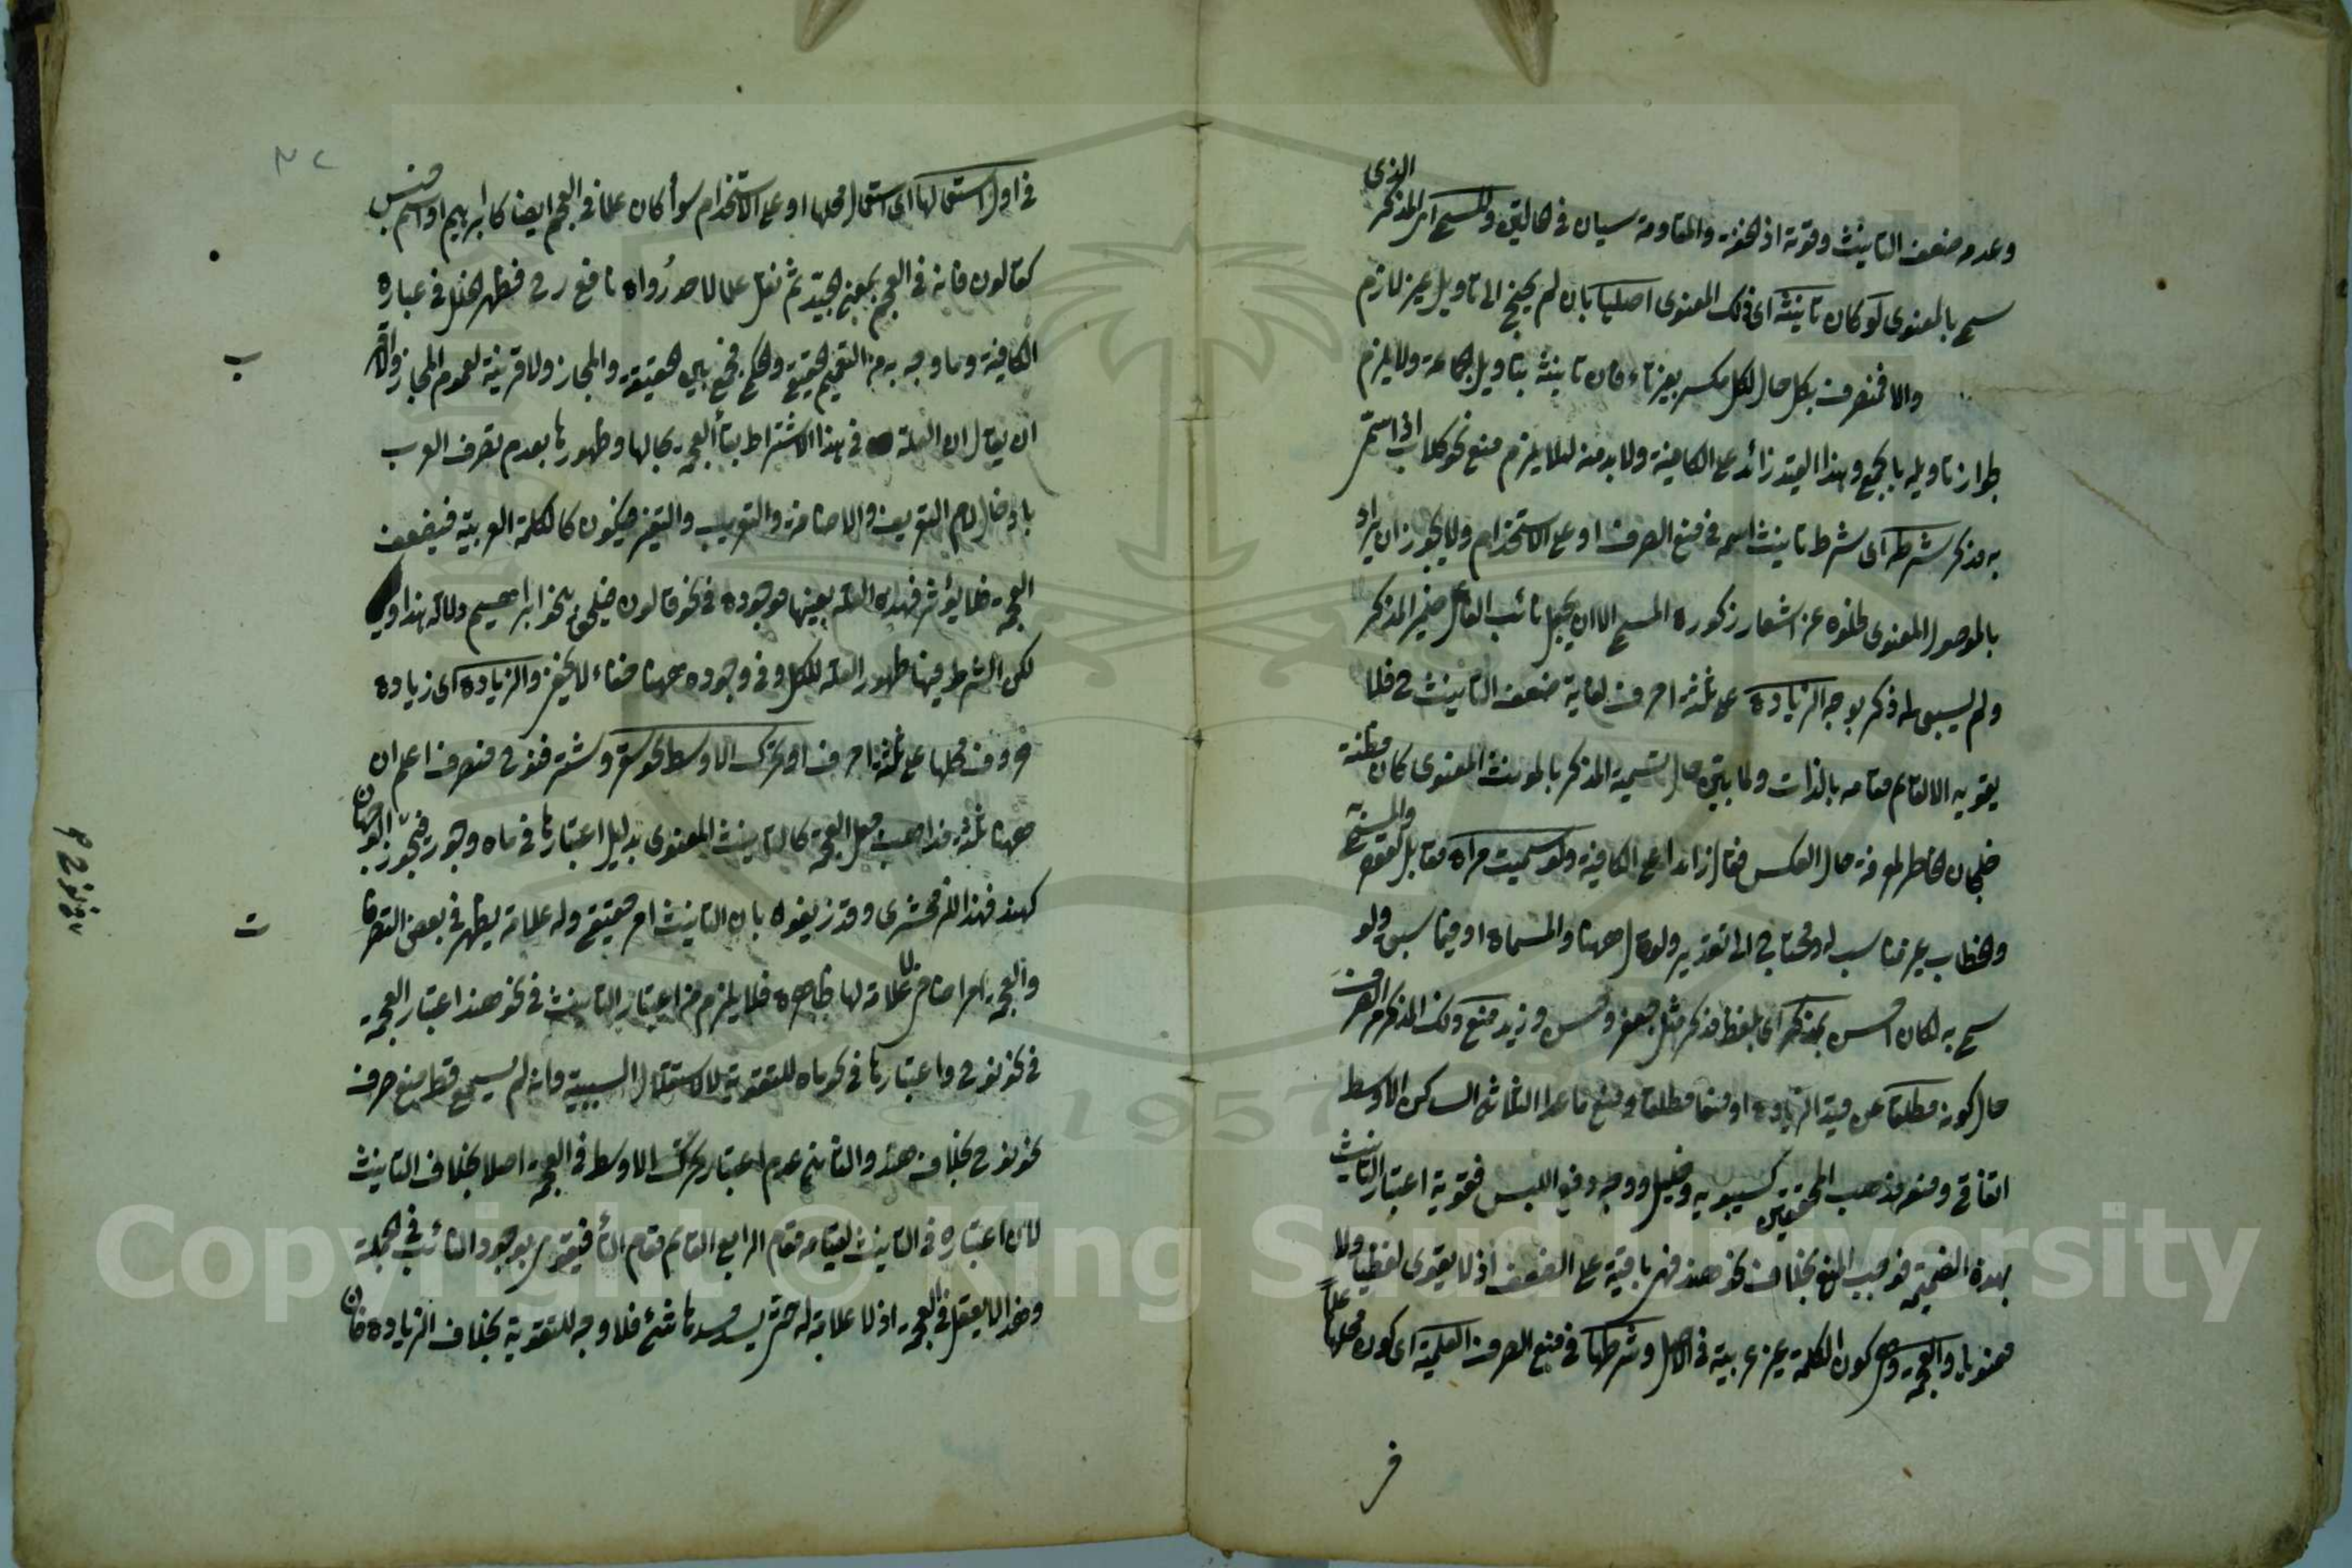 وعدمه ضعف التأنيث وقوته اذ الخفة والمقاومة سيان في الحالين والمسمى اى المذكر الذى
سمى بالمعنوى لو كان تأنيثه اى ذلك المعنوى اصليا بان لم يحتج الى تأويل غير لازم
والا فمنصرف بكل حال لكل مكسر بغير تاء فان تأنيثه بتأويل الجماعة ولا يلزم
جواز تأويله بالجمع وهذا القيد زائد على الكافية ولا بد منه لئلا يلزم منع نحو كلاب اذا
به مذكر شرطه اى شرط تأنيث اسمه في منع الصرف او على الاستخدام ولا يجوز ان يراد
بالموصول المعنوى لخلوه عن اشعار ذكورة المسمى الا ان يجعل نائب الفاعل ضمير المذكر
ولم يسبق له ذكر بوجه الزيادة على ثلثة احرف لغاية ضعف التأنيث ح فلا
يقويه الا القائم مقامه بالذات ولما بين حال تسمية المذكر بالمؤنث المعنوى كان مظنة
خلجان الخاطر لمعرفة حال العكس فقال زائدا على الكافية ولو سميت مرأة مقابل لقوله والمسمى
والخطاب غير مناسب له ومحتاج الى تقدير ولو قال ههنا والمسماة او فيما سبق ولو
سمى به لكان احسن بمذكر اى بلفظ مذكر مثل جعفر وحسن وزيد منع ذلك المذكر من الصرف
حال كونه مطلقا عن قيد الزيادة او منعا مطلقا ومنع ما عدا الثلاثى الساكن الاوسط
اتفاقى ومنعه مذهب المحققين كسيبويه وخليل ووجه دفع اللبس فتقوية اعتبار التأنيث
بهذه الضميمة فوجب المنع بخلاف نحو هند فهى باقية على الضعف اذ لا يقوى لفظيا ولا
معنويا والعجمة وهى كون الكلمة غير عربية في الاصل وشرطها في منع الصرف العلمية اى كون محلها علما
في اول استعمالها اى استعمال محلها او على الاستخدام سواء كان علما في العجم ايضا كابراهيم او اسم جنس
كقالون فانه في العجم بمعنى الجيد ثم نقل علما لاحد رواة نافع رح فظهر الخلل في عبارة
الكافية وما وجه به من التعميم الحقيقى والحكمى فجمع بين الحقيقة والمجاز ولا قرينة لعموم المجاز
ان يقال ان العلة في هذا الاشتراط بقاء العجمة بحالها وظهورها بعدم تصرف العرب
بادخال لام التعريف والاضافة والتعريب والتغير فيكون كالكلمة العربية فيضعف
العجمة فلا يؤثر فهذه العلة بعينها موجودة في نحو قالون فيلحق بنحو ابراهيم
لكن الشرط فيها ظهور العلة للكل وفي وجوده ههنا خفاء لا يخفى والزيادة اى زيادة
حروف محلها على ثلثة احرف او تحرك الاوسط نحو سقر وشتر فنوح منصرف اعلم ان
ههنا ثلثة مذاهب جعل العجمة كالتأنيث المعنوى بدليل اعتبارها في ماه وجور فيجوز الوجهان
كهند فهذا للزمخشرى وقد زيفوه بان التأنيث امر حقيقى وله علامة يظهر في بعض التصرفات
والعجمة امر اضافى لا علامة لها ظاهرة فلا يلزم من اعتبار التأنيث في نحو هند اعتبار العجمة
في نحو نوح واعتبارها في نحو ماه للتقوية لا لاستقلال السببية وانه لم يسمع قط منع صرف
نحو نوح بخلاف هند والثانى عدم اعتبار تحرك الاوسط في العجمة اصلا بخلاف التأنيث
لان اعتباره في التأنيث لقيامه مقام الرابع القائم مقام التاء فيقوى بوجود النائب في الجملة
وهذا لا يعقل في العجمة اذ لا علامة له حتى يسد مسدها شئ فلا وجه للتقوية بخلاف الزيادة فان